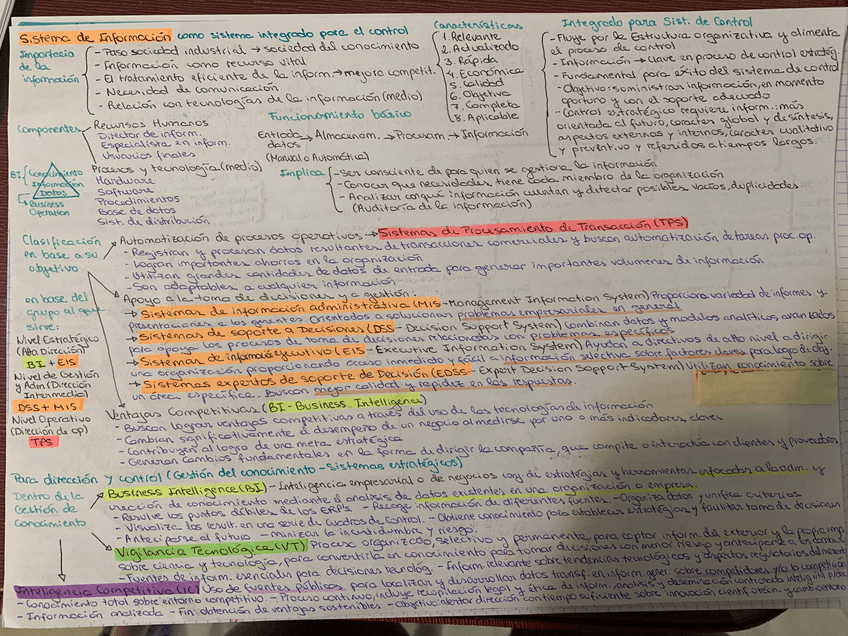 Sistema de Información como sistema integrado para el control
Importancia de la información
- Paso sociedad industrial → sociedad del conocimiento
- Información como recurso vital
- El tratamiento eficiente de la inform. → mejora competit.
- Necesidad de comunicación
- Relación con tecnologías de la información (medio)
Características
1. Relevante
2. Actualizado
3. Rápida
4. Económica
5. Calidad
6. Objetiva
7. Completa
8. Aplicable
Integrado para Sist. de Control
- Fluye por la Estructura organizativa y alimenta
el proceso de control
- Información → clave en proceso de control estratég
- Fundamental para éxito del sistema de control
- Objetivo: suministrar información, en momento
oportuno y con el soporte adecuado
- Control estratégico requiere inform.: más
orientada al futuro, carácter global y de síntesis,
aspectos externos y internos, carácter cualitativo
y preventivo y referidos a tiempos largos.
Componentes
Recursos Humanos
Director de inform.
Especialista en inform.
Usuarios finales
Procesos y tecnología (medio)
Hardware
Software
Procedimientos
Base de datos
Sist. de distribución
BI
Conocimiento
Information
Datos
Business
Operation
Funcionamiento básico
Entrada datos → Almacenam. → Procesam → Información
(Manual o Automática)
Implica
- Ser consciente de para quien se gestiona la información
- Conocer que necesidades tiene cada miembro de la organización
- Analizar con qué información cuentan y detectar posibles vacíos, duplicidades
(Auditoría de la información)
Clasificación
en base a su
objetivo
Automatización de procesos operativos → Sistemas de Procesamiento de Transacción (TPS)
- Registran y procesan datos resultantes de transacciones comerciales y buscan automatización de tareas proc. op.
- Logran importantes ahorros en la organización
- Utilizan grandes cantidades de datos de entrada para generar importantes volumenes de información
- Son adaptables a cualquier información
Apoyo a la toma de decisiones y a gestión:
→ Sistemas de información administrativa (MIS - Management Information System) Proporciona variedad de informes y
presentaciones a los gerentes. Orientados a solucionar problemas empresariales en general
→ Sistemas de soporte a Decisiones (DSS - Decision Support System) Combinan datos y modelos analíticos avanzados
para apoyar los procesos de toma de decisiones relacionadas con problemas específicos
→ Sistemas de información ejecutivo (EIS - Executive Information System) Ayudan a directivos de alto nivel a dirigir
una organización proporcionando acceso inmediato y fácil a información selectiva sobre factores claves para logro de obj.
→ Sistemas expertos de soporte de Decisión (EDSS - Expert Decision Support System) Utilizan conocimiento sobre
un área específica. Buscan mejor calidad y rapidez en las respuestas.
en base del
grupo al que
sirve:
Nivel Estratégico
(Alta Dirección)
BI + EIS
Nivel de Gestión
y Adm (Dirección
Intermedia)
DSS + MIS
Nivel Operativo
(Dirección de op)
TPS
Ventajas Competitivas (BI - Business Intelligence)
- Buscan lograr ventajas competitivas a través del uso de las tecnologías de información
- Cambian significativamente el desempeño de un negocio al medirse por uno o más indicadores claves
- Contribuyen al logro de una meta estratégica
- Generan cambios fundamentales en la forma de dirigir la compañía, que compite o interactúa con clientes y proveedores
Para dirección y control (Gestión del conocimiento - Sistemas estratégicos)
Dentro de la
Gestión de
Conocimiento
Business Intelligence (BI) - Inteligencia empresarial o de negocios conj de estrategias y herramientas enfocadas a la adm. y
creación de conocimiento mediante el análisis de datos existentes en una organización o empresa.
- Resuelve los puntos débiles de los ERPs - Recoge información de diferentes fuentes - Organiza datos y unifica criterios
- Visualiza los result. en una serie de cuadros de control. - Obtiene conocimiento para establecer estrategias y facilitar toma de decisiones
- Anteciparse al futuro - minimizar la incertidumbre y riesgo
Vigilancia Tecnológica (VT) Proceso organizado, selectivo y permanente, para captar inform. del exterior y la propia emp
sobre ciencia y tecnología, para convertirla en conocimiento para tomar decisiones con menor riesgo y anticiparse a los cambios
- Fuentes de inform. esenciales para decisiones tecnológ. - Inform relevante sobre tendencias tecnológicas y aspectos regulatorios del mercado
Inteligencia Competitiva (IC) Uso de fuentes públicas para localizar y desarrollar datos transf. en inform. gral. sobre competidores y/o la competición
- Conocimiento total sobre entorno competitivo - Proceso continuo, incluye recopilación legal y ética de inform, análisis y diseminación controlada
- Información analizada - Fin: obtención de ventajas sostenibles - Objetivo: alertar dirección con tiempo suficiente sobre innovación científ.